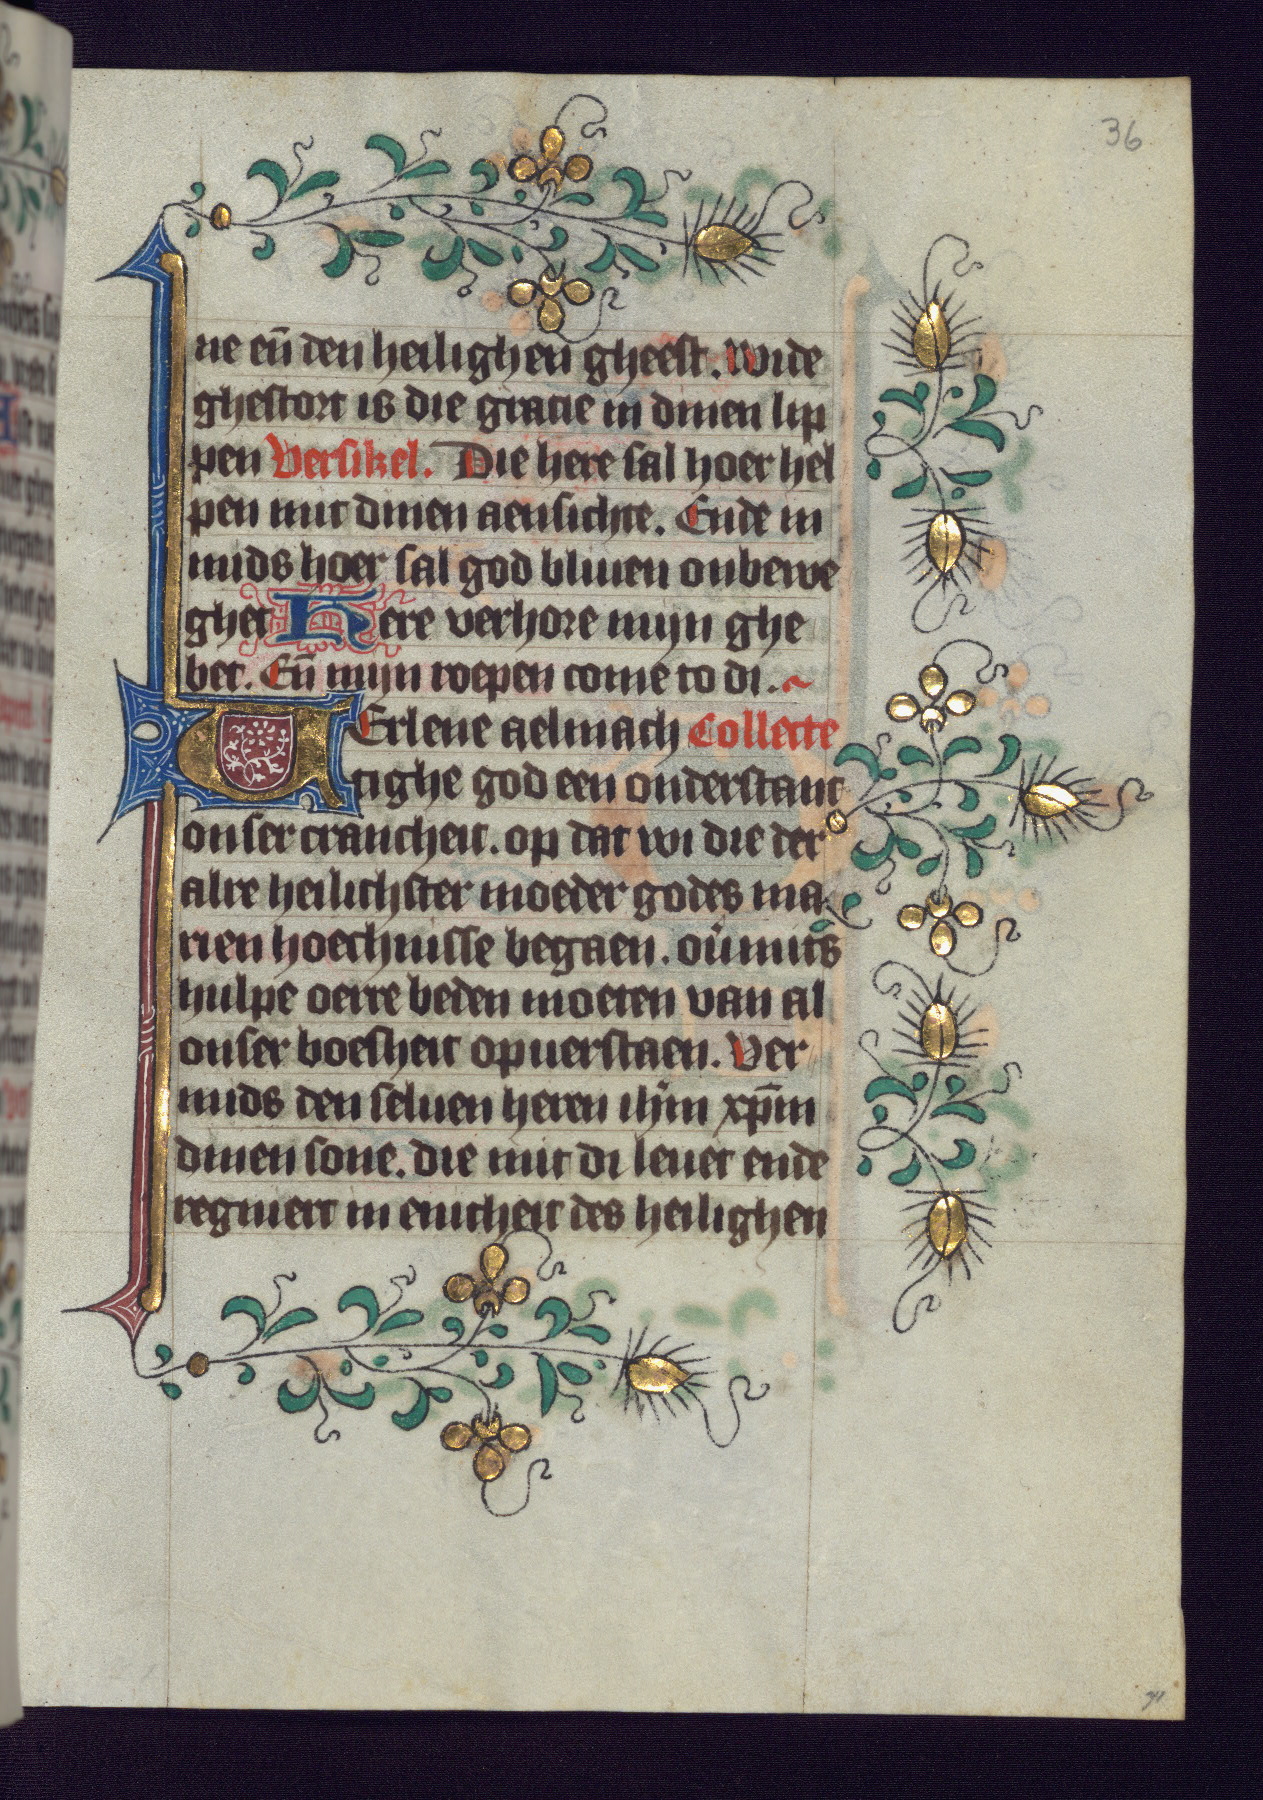 36
ne eñ den heilighen gheest. Wide
ghestort is die gracie in dinen lip
pen Versikel. Die here sal hoer hel
pen mit dinen aensichte. Ende in
mids hoer sal god bliuen onbewe
ghet Here verhore mijn ghe
bet. Eñ mijn roepen come to di.
VErlene aelmach Collecte
tighe god een onderstant
onser crancheit. op dat wi die der
alre heilichster moeder godes ma
rien hoechnisse begaen. ou̇mits
hulpe oerre beden moeten van al
onser boesheit opuerstaen. Ver
mids den seluen heren ih̄m xp̄m
dinen sone. die mit di leuet ende
regniert in enicheit des heilighen